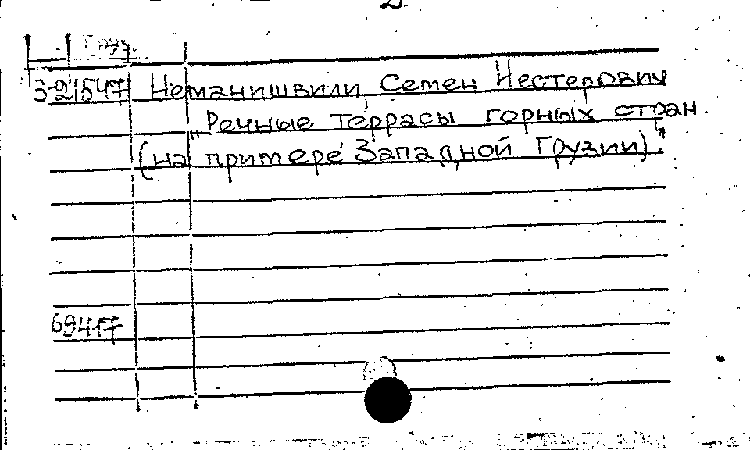 Груз.
3-21547 Неманишвили Семен Нестерович
"Речные террасы горных стран
(на примере Западной Грузии)."
69417